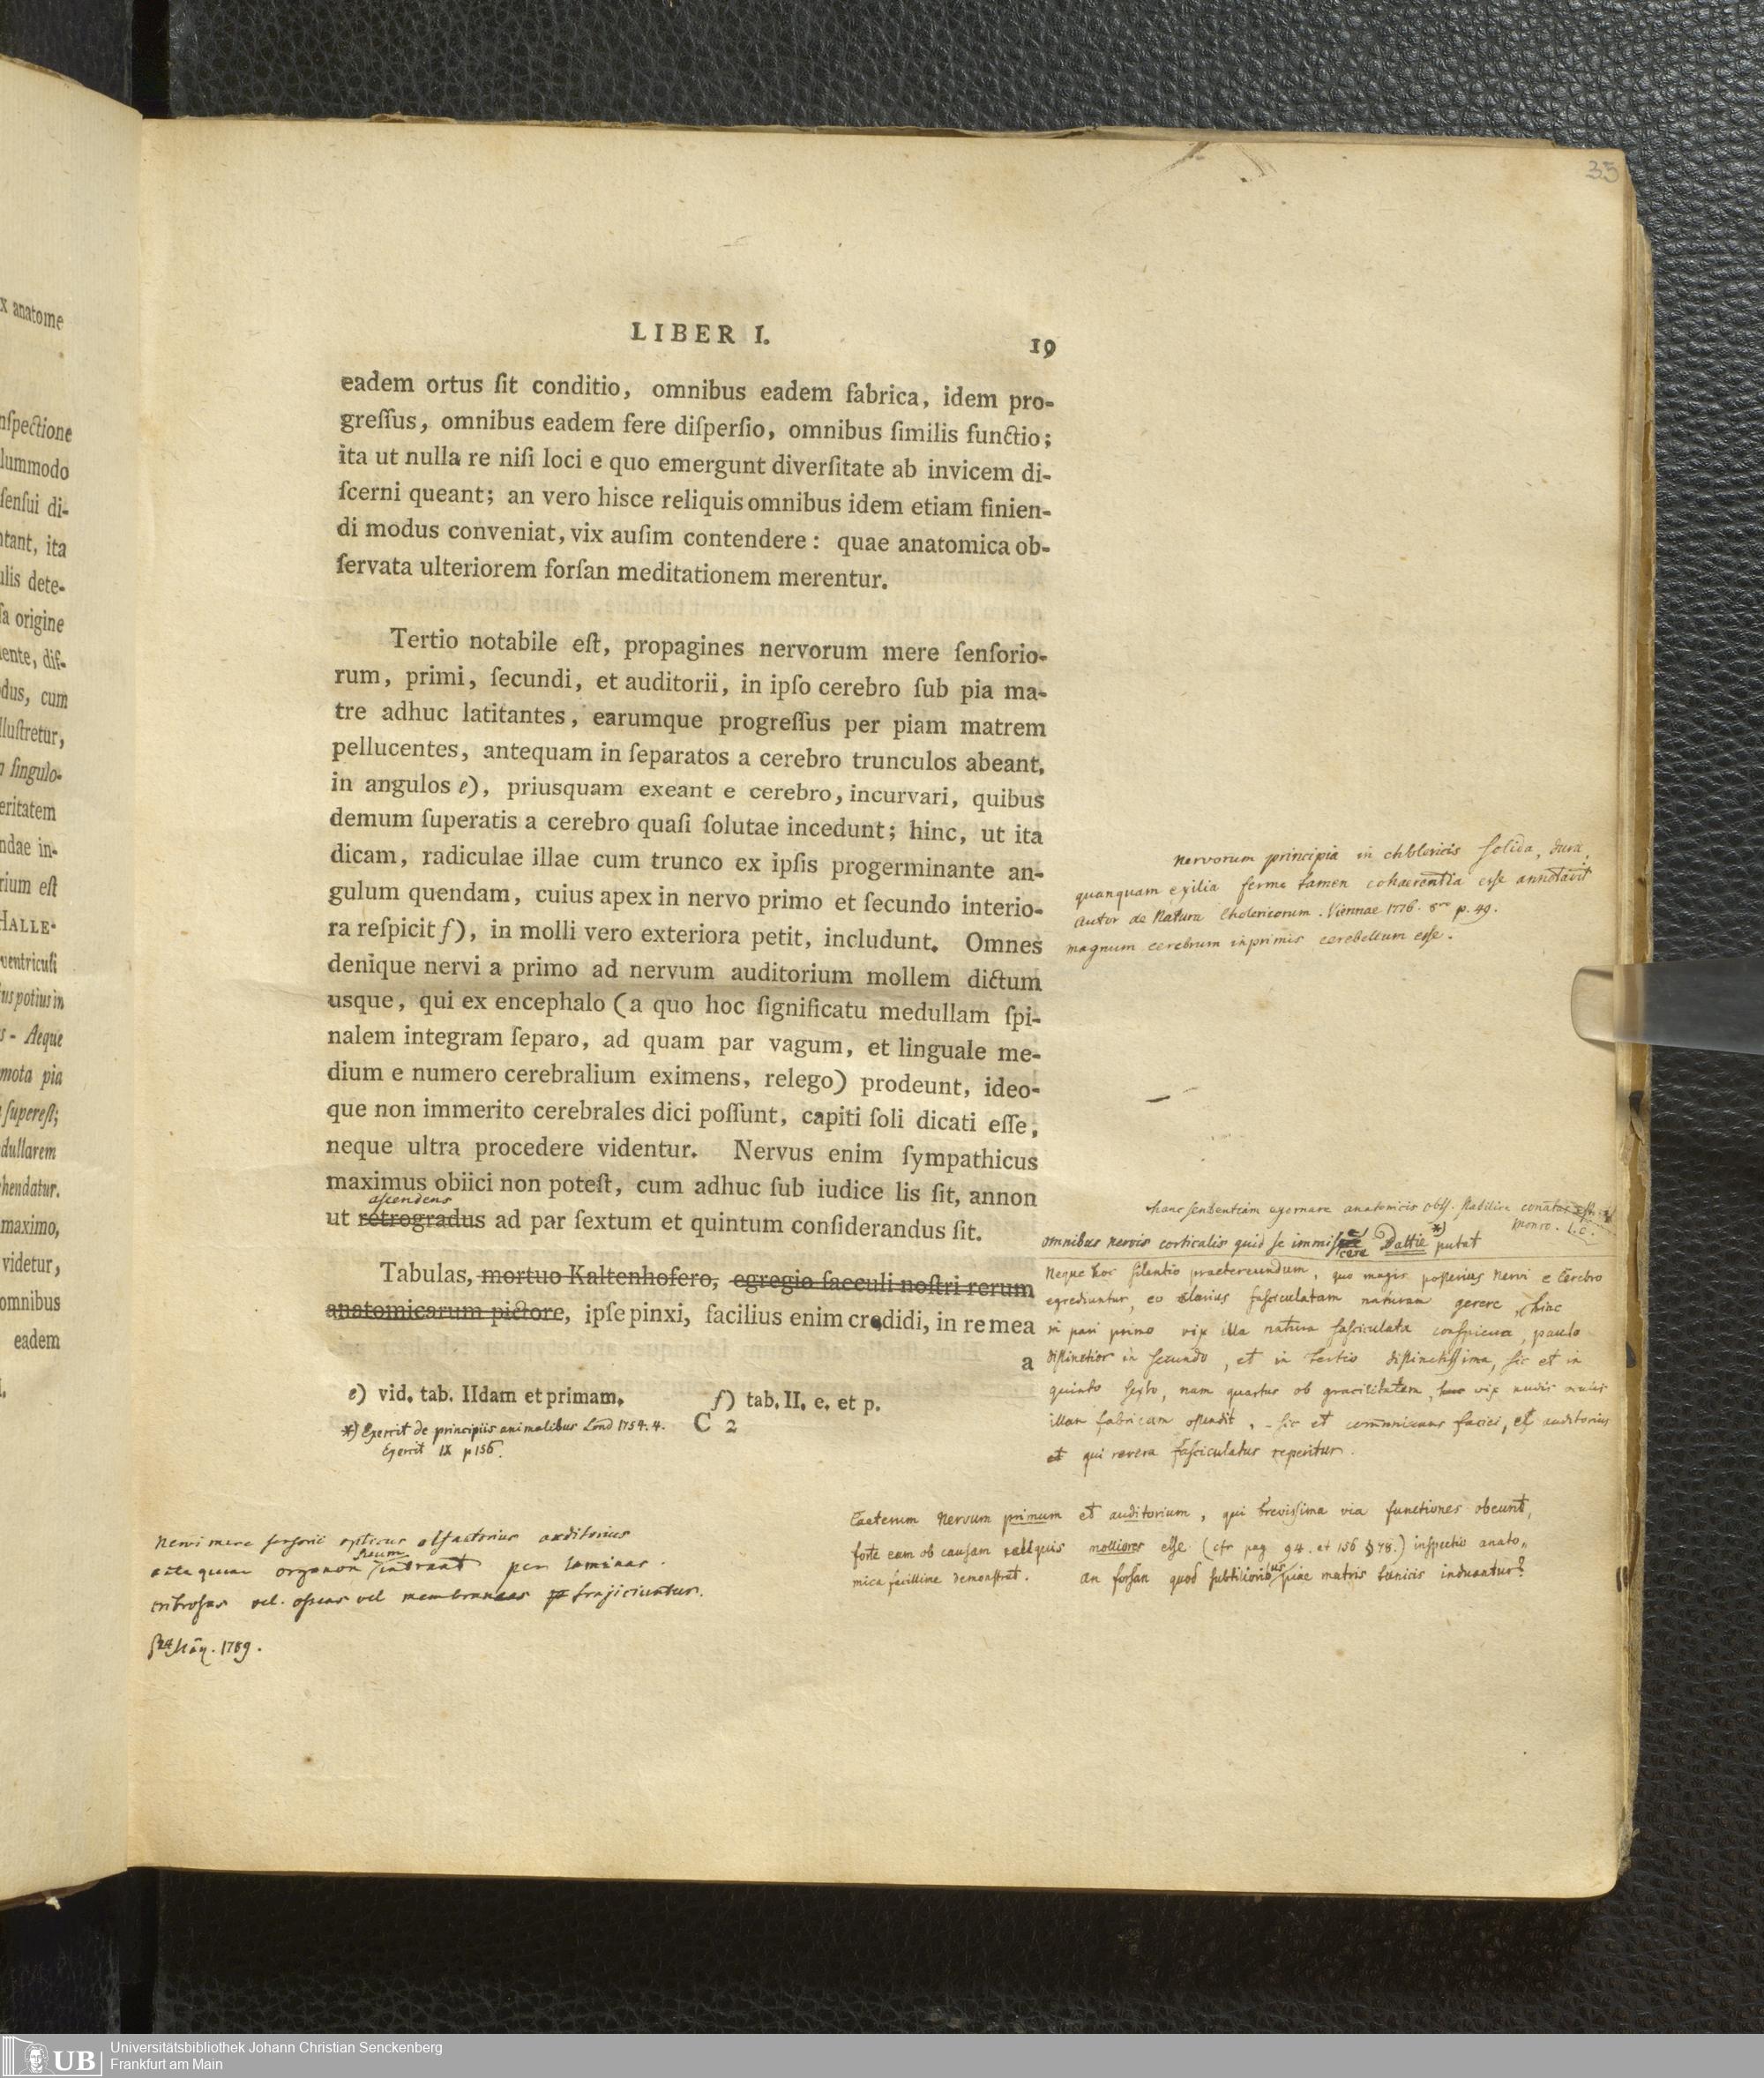 x anatome
nſpectione
lummodo
ſenſui di-
ntant, ita
ulis dete-
ſa origine
ente, diſ-
odus, cum
lluſtretur,
n ſingulo-
eritatem
ndae in-
rium eſt
HALLE-
ventriculi
us potius in
s - Aeque
mota pia
ſupereſt;
dullarem
hendatur.
maximo,
videtur,
omnibus
eadem
35
LIBER I.
19
eadem ortus ſit conditio, omnibus eadem fabrica, idem pro-
greſſus, omnibus eadem fere diſperſio, omnibus ſimilis functio;
ita ut nulla re niſi loci e quo emergunt diverſitate ab invicem di-
ſcerni queant; an vero hisce reliquis omnibus idem etiam finien-
di modus conveniat, vix auſim contendere: quae anatomica ob-
ſervata ulteriorem forſan meditationem merentur.
Tertio notabile eſt, propagines nervorum mere ſenſorio-
rum, primi, ſecundi, et auditorii, in ipſo cerebro ſub pia ma-
tre adhuc latitantes, earumque progreſſus per piam matrem
pellucentes, antequam in ſeparatos a cerebro trunculos abeant,
in angulos e), priusquam exeant e cerebro, incurvari, quibus
demum ſuperatis a cerebro quaſi ſolutae incedunt; hinc, ut ita
dicam, radiculae illae cum trunco ex ipſis progerminante an-
gulum quendam, cuius apex in nervo primo et ſecundo interio-
ra reſpicit f), in molli vero exteriora petit, includunt. Omnes
denique nervi a primo ad nervum auditorium mollem dictum
usque, qui ex encephalo (a quo hoc ſignificatu medullam ſpi-
nalem integram ſeparo, ad quam par vagum, et linguale me-
dium e numero cerebralium eximens, relego) prodeunt, ideo-
que non immerito cerebrales dici poſſunt, capiti ſoli dicati eſſe,
neque ultra procedere videntur. Nervus enim ſympathicus
maximus obiici non poteſt, cum adhuc ſub iudice lis ſit, annon
aſcendens
ut retrogradus ad par ſextum et quintum conſiderandus ſit.
Tabulas, mortuo Kaltenhofero, egregio ſaeculi noſtri rerum
anatomicarum pictore, ipſe pinxi, facilius enim credidi, in re mea
a
e) vid. tab. IIdam et primam.
f) tab. II. e. et p.
C 2
*) Exercit de principiis animalibus Lond 1754. 4.
Exercit IX p 156.
nervorum principia in cholericis ſolida, dura,
quanquam exilia ferme tamen cohaerentia eſſe annotavit
autor de Natura Cholericorum. Viennae 1776. 8vo p. 49.
magnum cerebrum inprimis cerebellum eſſe.
hanc ſententiam exornare anatomicis obſ. ſtabilire conatus
Monro. l.c.
omnibus nervis corticalis quid ſe immiſcere Battie *) putat
Neque hoc ſilentio praetereundum, quo magis poſterius nervi e Cerebro
egrediuntur, eo clarius faſciculatam naturam gerere, hinc
in pari primo vix illa natura faſciculata conſpicua, paulo
diſtinctior in ſecundo, et in tertio diſtinctiſſima, ſic et in
quinto ſexto, nam quartus ob gracilitatem, vix nudis oculis
illam fabricam oſtendit, ſic et communicans faciei, et auditorius
et qui revera faſciculatus reperitur.
Caeterum nervum primum et auditorium, qui breviſſima via functiones obeunt,
forte eam ob cauſam reliquis molliores eſſe (cfr pag 94. et 156 § 78.) inſpectio anato-
mica facillime demonſtrat. An forſan quod ſubtilioribus piae matris tunicis induantur?
Nervi mere ſenſorii opticus olfactorius auditorius
antequam organon suum intrant per laminas
cribroſas vel oſseas vel membraneas trajiciuntur.
Maj. 1789.
UB
Universitätsbibliothek Johann Christian Senckenberg
Frankfurt am Main